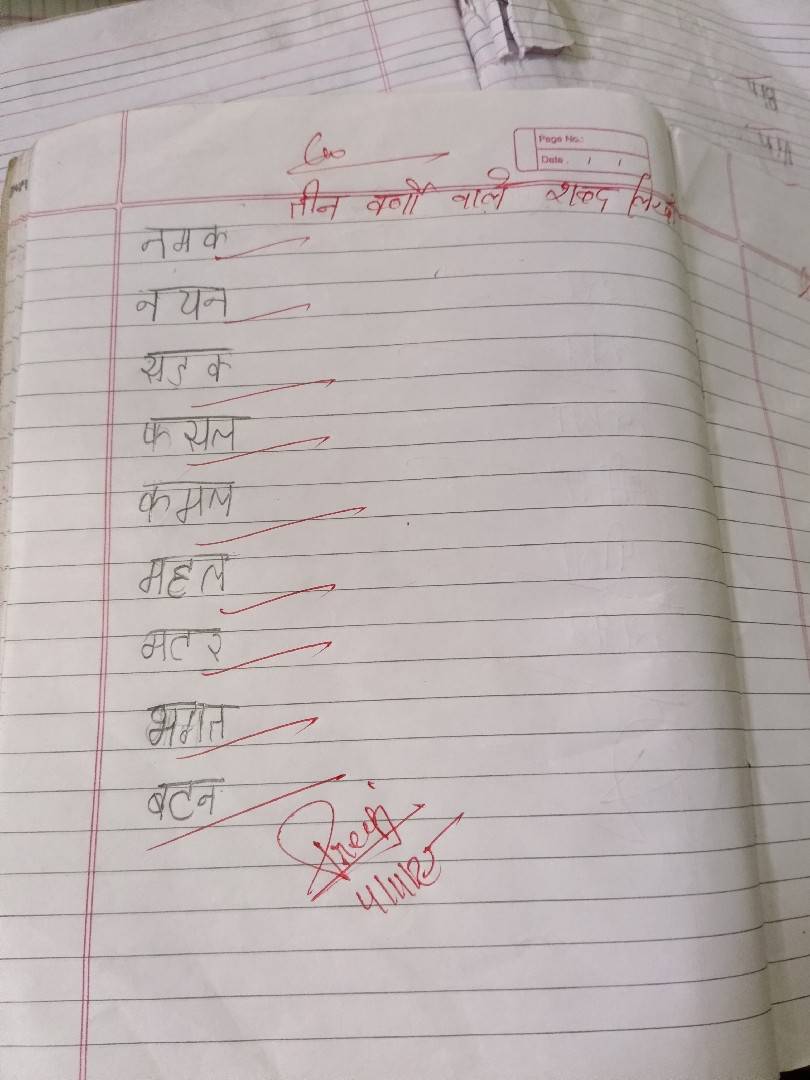 Cw
Page No.:
Date. / /
तीन वर्णों वाले शब्द लिखो
नमक
नयन
सड़क
फसल
कमल
महल
मटर
भगत
बटन
4/11/25